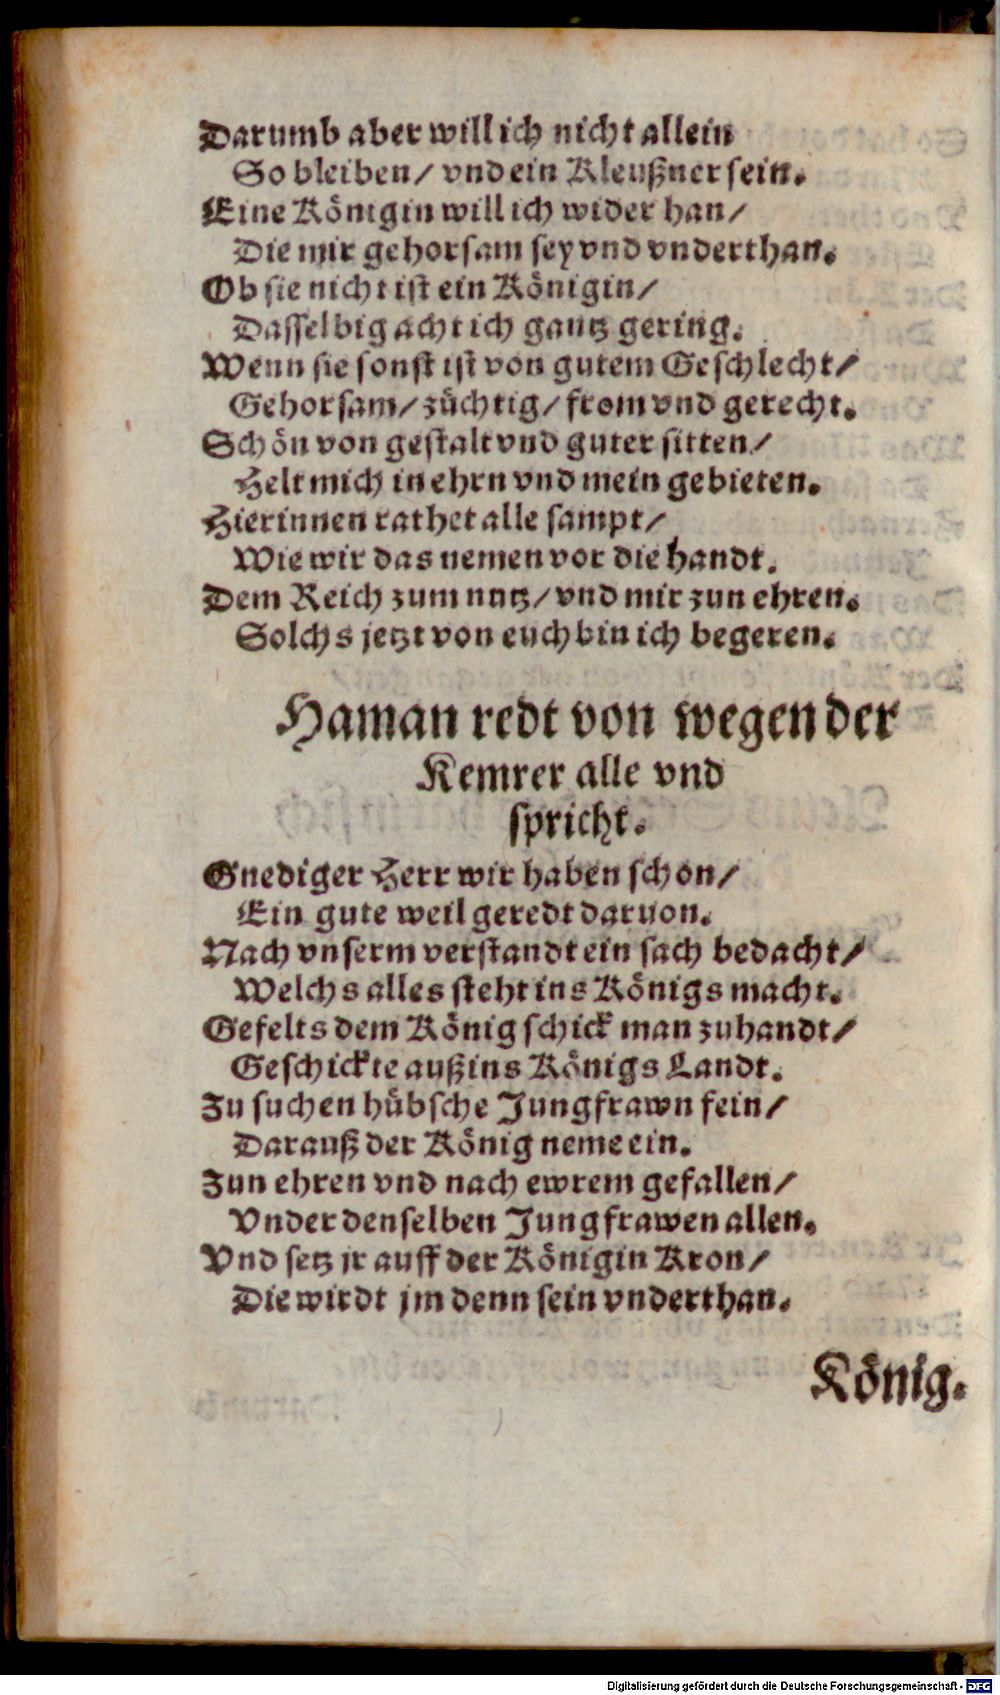 Darumb aber will ich nicht allein
So bleiben/ vnd ein Kleußner sein.
Eine Königin will ich wider han/
Die mir gehorsam sey vnd vnderthan.
Ob sie nicht ist ein Königin/
Dasselbig acht ich gantz gering.
Wenn sie sonst ist von gutem Geschlecht/
Gehorsam/ züchtig/ from vnd gerecht.
Schön von gestalt vnd guter sitten/
Helt mich in ehrn vnd mein gebieten.
Hierinnen rathet alle sampt/
Wie wir das nemen vor die handt.
Dem Reich zum nutz/ vnd mir zun ehren.
Solchs jetzt von euch bin ich begeren.
Haman redt von wegen der
Kemrer alle vnd
spricht.
Gnediger Herr wir haben schon/
Ein gute weil geredt daruon.
Nach vnserm verstandt ein sach bedacht/
Welchs alles steht ins Königs macht.
Gefelts dem König schick man zuhandt/
Geschickte auß ins Königs Landt.
Zu suchen hübsche Jungfrawn fein/
Darauß der König neme ein.
Zun ehren vnd nach ewrem gefallen/
Vnder denselben Jungfrawen allen.
Vnd setz jr auff der Königin Kron/
Die wirdt jm denn sein vnderthan.
König.
Digitalisierung gefördert durch die Deutsche Forschungsgemeinschaft - DFG